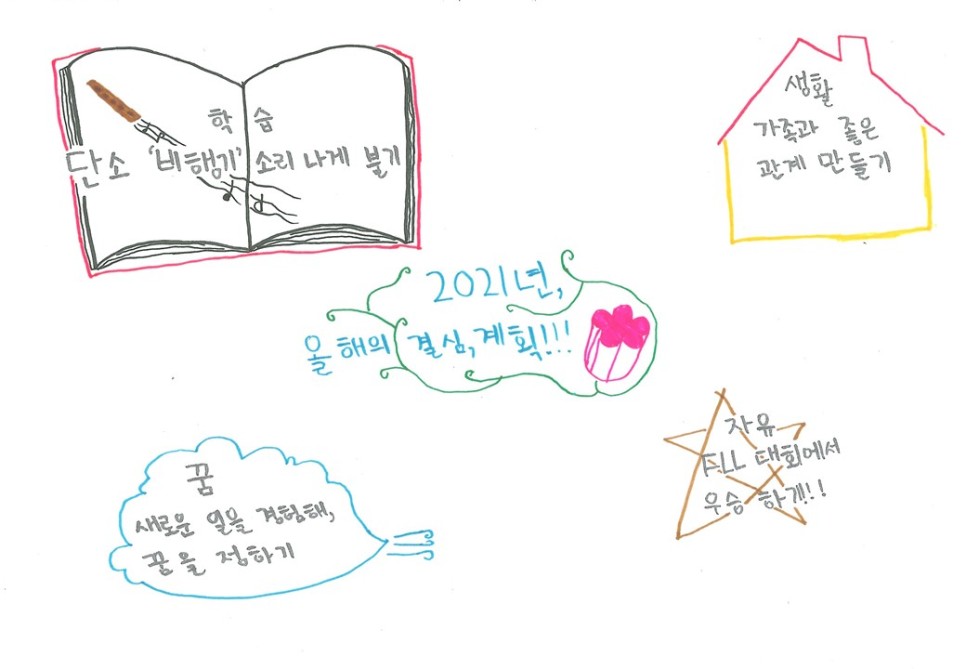 학 습
단소 '비행기' 소리 나게 불기
생활
가족과 좋은
관계 만들기
2021년,
올해의 결심,계획!!!
꿈
새로운 일을 경험해,
꿈을 정하기
자유
FLL 대회에서
우승 하개!!